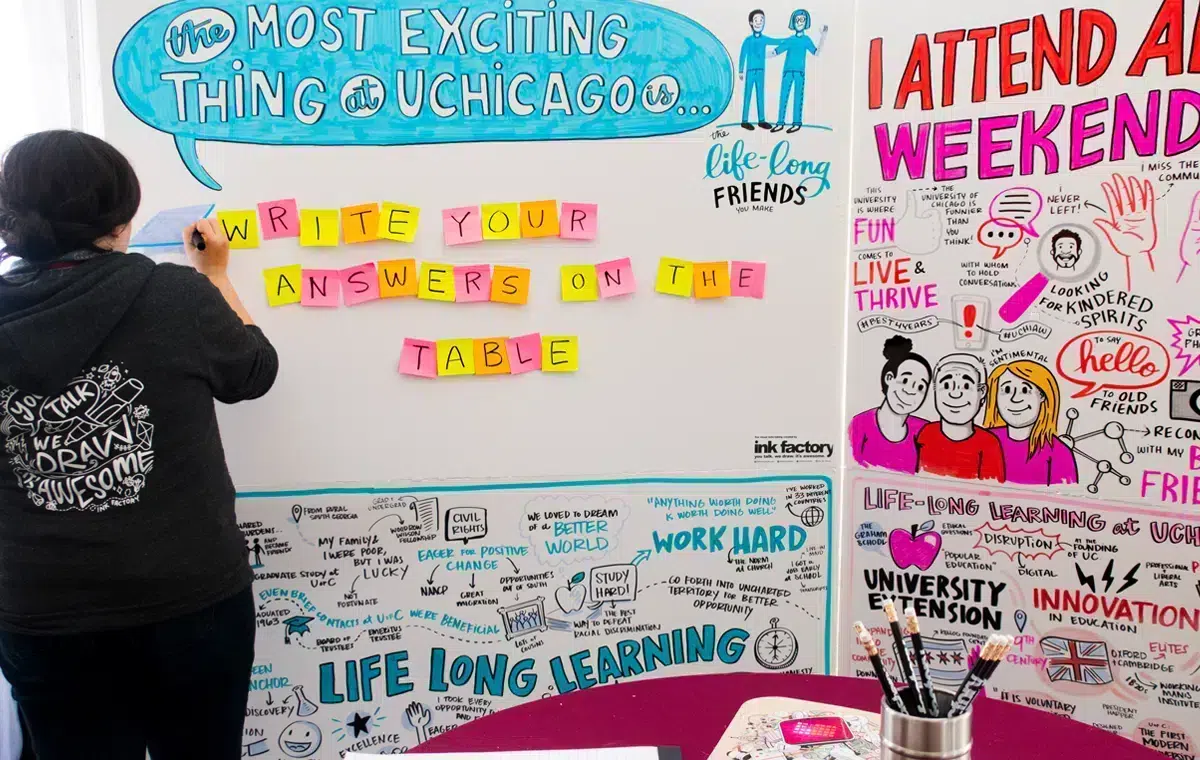 the MOST EXCITING
THING at UCHICAGO is...
the
life-long
FRIENDS
YOU MAKE
WRITE YOUR
ANSWERS ON THE
TABLE
ink factory
YOU TALK
WE
DRAW
AWESOME
INK FACTORY
I ATTEND
WEEKEND
I MISS THE
THIS
UNIVERSITY
IS WHERE
FUN
COMES TO
LIVE &
THRIVE
THE
UNIVERSITY OF
CHICAGO IS
FUNNIER
THAN
YOU
THINK!
I
NEVER
LEFT!
WITH WHOM
TO HOLD
CONVERSATIONS
LOOKING
FOR KINDERED
SPIRITS
#BEST4YEARS
#UCHIAW
I'M
SENTIMENTAL
TO SAY
hello
TO OLD
FRIENDS
WITH MY
FRIE
FROM RURAL
SOUTH GEORGIA
MY FAMILY &
I WERE POOR,
BUT I WAS
LUCKY
NOT
FORTUNATE
WOODROW
WILSON
FELLOWSHIP
CIVIL
RIGHTS
EAGER FOR POSITIVE
CHANGE
NAACP
GREAT
MIGRATION
OPPORTUNITIES
OUT OF SOUTH
WE LOVED TO DREAM
of a BETTER
WORLD
"ANYTHING WORTH DOING
IS WORTH DOING WELL"
WORK HARD
I'VE WORKED
IN 33 DIFFERENT
COUNTRIES
THE NORM
AT CHURCH
STUDY
HARD!
THE BEST
WAY TO DEFEAT
RACIAL DISCRIMINATION
GO FORTH INTO UNCHARTED
TERRITORY FOR BETTER
OPPORTUNITY
GRADUATE STUDY AT
UofC
EVEN BRIEF
CONTACTS AT UofC WERE BENEFICIAL
1963
BOARD OF
TRUSTEES
EMERITUS
TRUSTEE
LOTS OF
COUSINS
LIFE LONG LEARNING
DISCOVERY
I TOOK EVERY
OPPORTUNITY
EXCELLENCE
HONESTY
LIFE-LONG LEARNING at UCH
THE
GRAHAM
SCHOOL
ETHICAL
QUESTIONS
"POPULAR
EDUCATION"
DISRUPTION
DIGITAL
AT THE
FOUNDING
OF UC
PROFESSIONAL
LIBERAL
ARTS
UNIVERSITY
EXTENSION
INNOVATION
IN EDUCATION
19th
CENTURY
OXFORD
+CAMBRIDGE
ELITES
1820s
WORKING
MANS
INSTITUTE
"IT IS VOLUNTARY
PRESIDENT
HARPER
UofC
THE FIRST
MODERN
ink factory